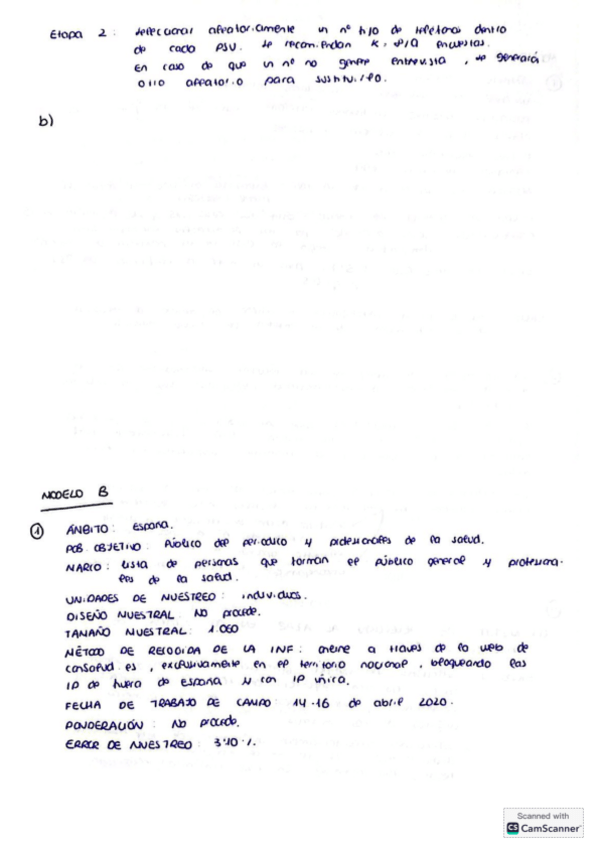 Etapa 2: seleccionar aleatoriamente un nº fijo de teléfonos dentro
de cada PSU. Se recomiendan K, encuestas.
En caso de que un nº no genere entrevista, se generará
otro aleatorio para sustituirlo.
b)
MODELO B
① ÁMBITO: España.
POB. OBJETIVO: Público del periodico y profesionales de la salud.
MARCO: Lista de personas que forman el público general y profesiona-
les de la salud.
UNIDADES DE MUESTREO: individuos.
DISEÑO MUESTRAL: No procede.
TAMAÑO MUESTRAL: 1.060
MÉTODO DE RECOGIDA DE LA INF: online a traves de la web de
consalud.es, exclusivamente en el territorio nacional, bloqueando las
IP de fuera de España y con IP única.
FECHA DE TRABAJO DE CAMPO: 14-16 de abril 2020.
PONDERACIÓN: No procede.
ERROR DE MUESTREO: 3'10%.
Scanned with
CS CamScanner